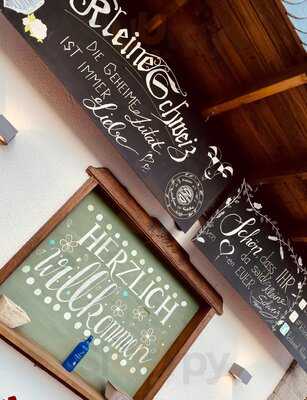 Kleine Schweiz
DIE GEHEIME
Zutat
IST IMMER
Liebe
HERZLICH
willkommen
Schön
dass IHR
da seid
EUER